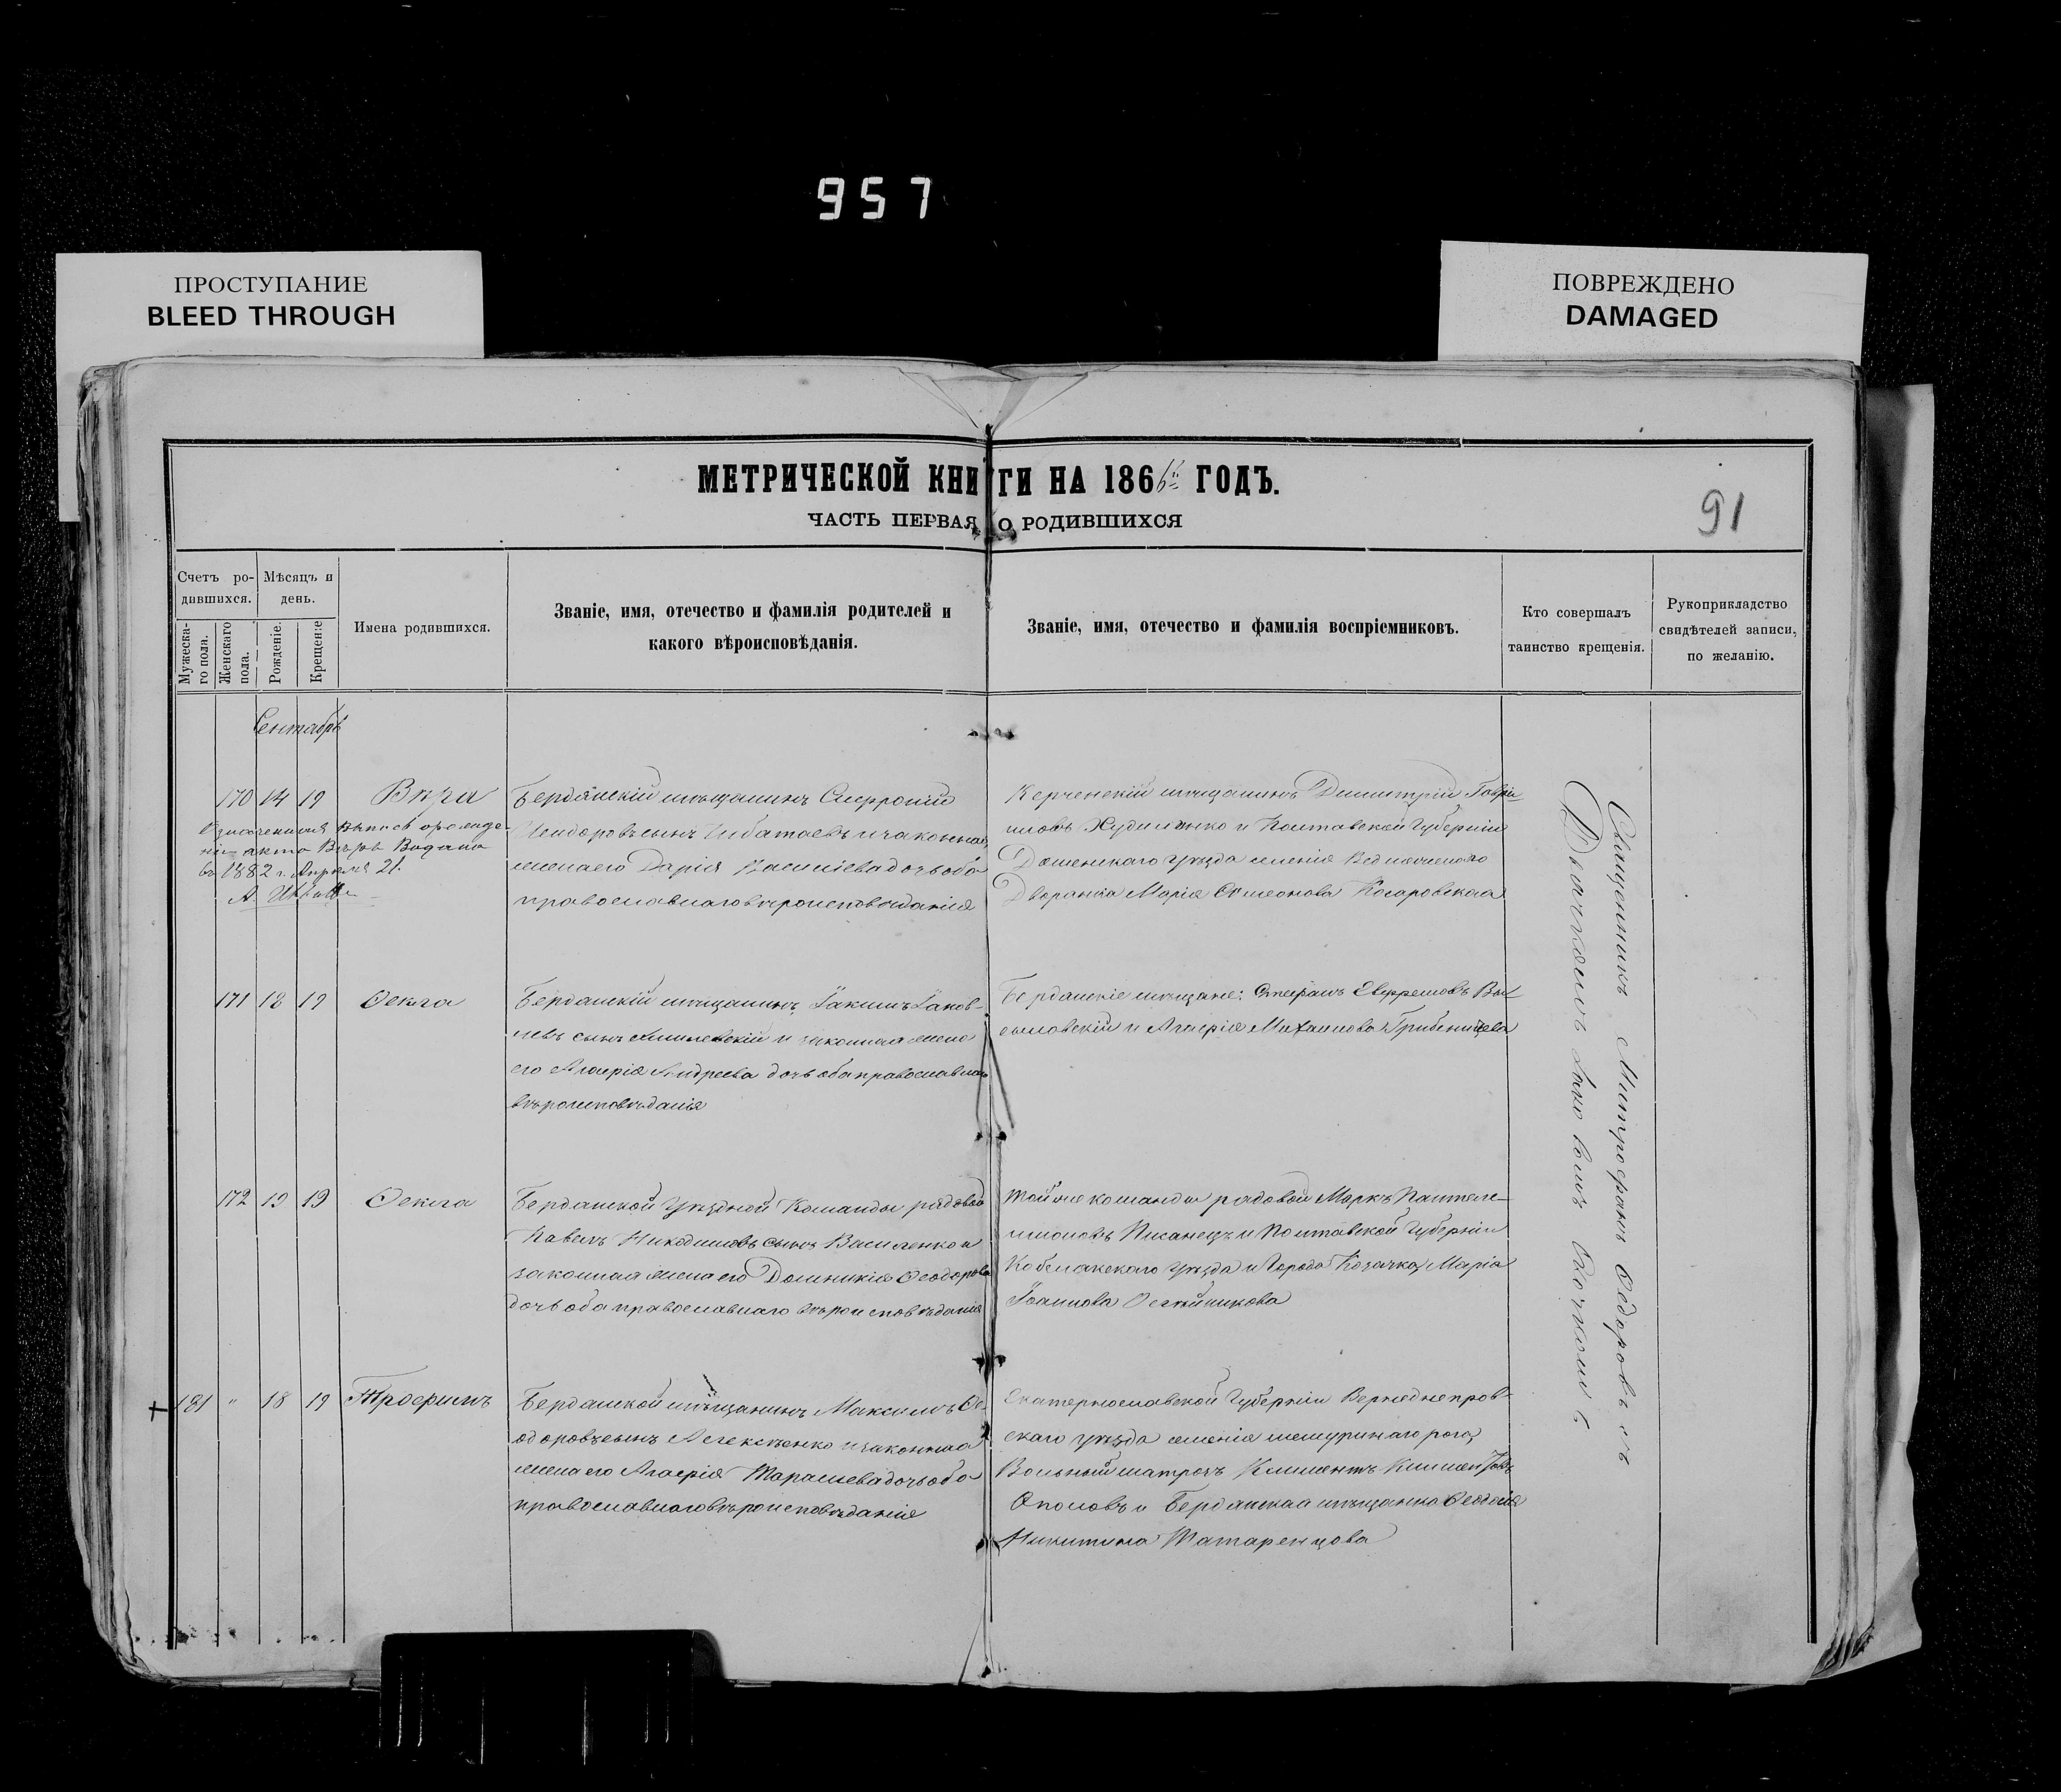 957
ПРОСТУПАНИЕ
BLEED THROUGH
ПОВРЕЖДЕНО
DAMAGED
МЕТРИЧЕСКОЙ КНИГИ НА 1866 ГОДЪ.
ЧАСТЬ ПЕРВАЯ, О РОДИВШИХСЯ
91
Счетъ ро-
дившихся.
Мѣсяцъ и
день.
Мужеска-
го пола.
Женскаго
пола.
Рожденіе.
Крещеніе
Имена родившихся.
Званіе, имя, отечество и фамилія родителей и
какого вѣроисповѣданія.
Званіе, имя, отечество и фамилія воспріемниковъ.
Кто совершалъ
таинство крещенія.
Рукоприкладство
свидѣтелей записи,
по желанію.
Сентябрь
170 14 19 Вѣра
Бердянскій мѣщанинъ Софроній
Исидоровъ сынъ и законная
жена его Дарія Василіева дочь оба
православнаго вѣроисповѣданія
Керченскій мѣщанинъ Димитрій Гаври-
иловъ Худименко и Полтавской Губерніи
уѣзда селенія
Дворянка Марія Симеонова Косаровская
выпись о рожде-
ніи акта Вѣры Выдана
въ 1882 г. Апрѣля 21.
171 18 19 Ѳекла
Бердянскій мѣщанинъ Іакимъ Іаков-
левъ сынъ и законная жена
его Агаѳія Андреева дочь оба православнаго
вѣроисповѣданія
Бердянскіе мѣщане: Стефанъ Евфремовъ
и Агаѳія Михаилова
172 19 19 Ѳекла
Бердянской Уѣздной Команды рядовой
Павелъ Никодимовъ сынъ Василенко и
законная жена его Домникія Ѳеодорова
дочь оба православнаго вѣроисповѣданія
Той же команды рядовой Маркъ Пантеле-
имоновъ Писанецъ и Полтавской Губерніи
Кобелякскаго уѣзда и Города Козачка Марія
Іоаннова
181 " 18 19 Трофимъ
Бердянской мѣщанинъ Максимъ Ѳе-
одоровъ сынъ Алексѣенко и законная
жена его Агаѳія Тарасіева дочь оба
православнаго вѣроисповѣданія
Екатеринославской Губерніи Верхнеднепров-
скаго уѣзда селенія мишуринаго рога
Вольный матрозъ Климентъ Климентовъ
и Бердянская мѣщанка Ѳеодосія
Никитина Татаренцова
Священникъ Митрофанъ Ѳедоровъ съ